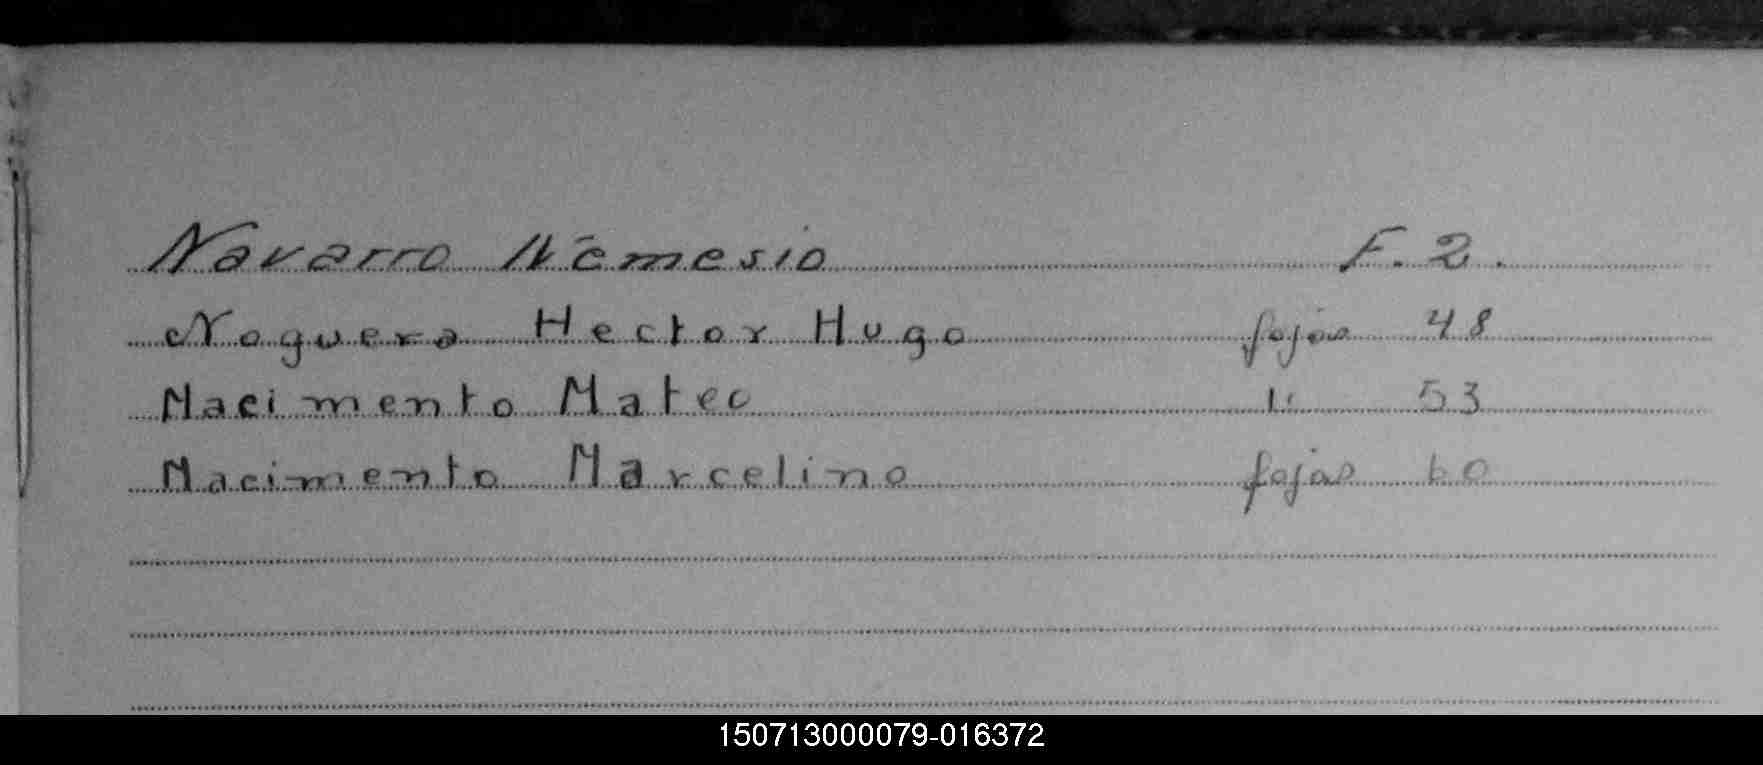 Navarro Nemesio F. 2.
Noguera Hector Hugo fojas 48
Nacimento Mateo " 53
Nacimento Marcelino fojas 60
150713000079-016372